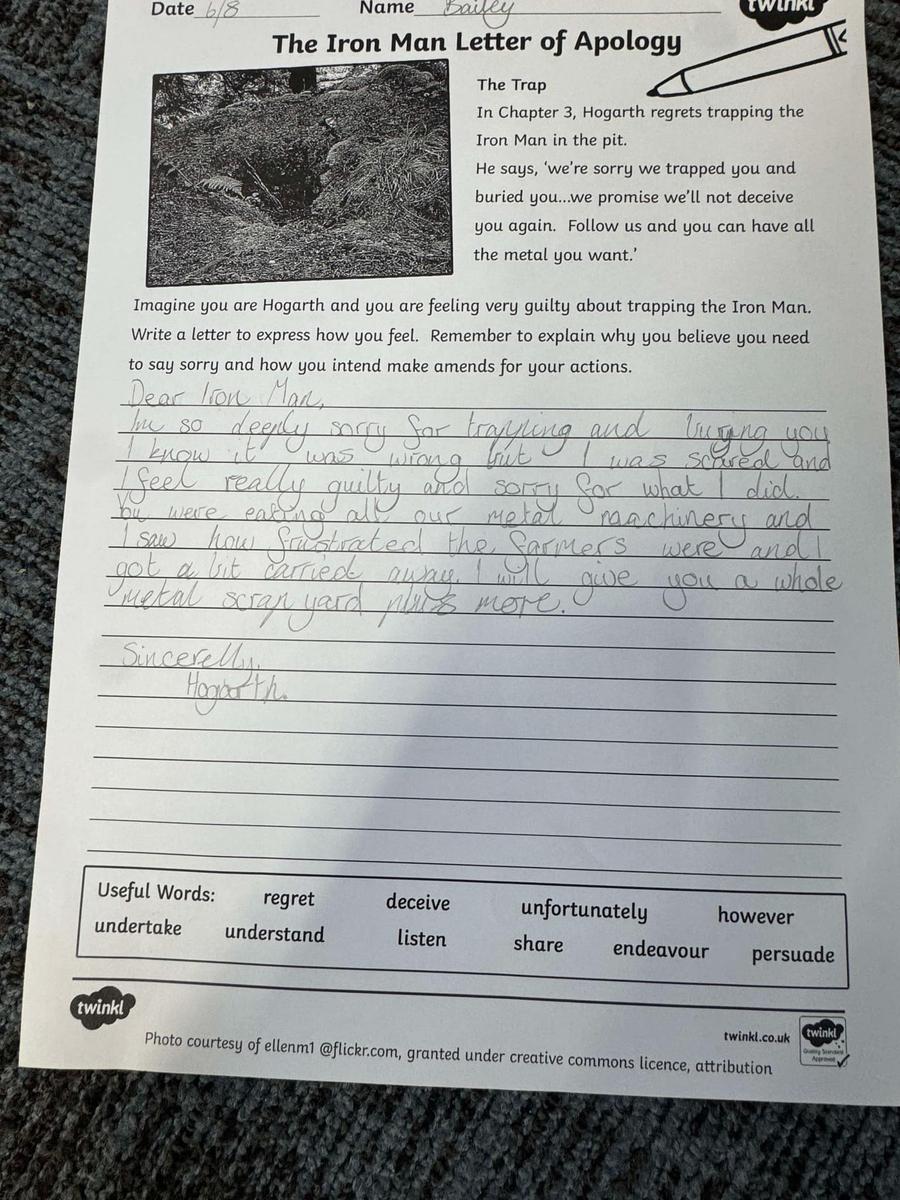 Date 6/8 Name Bailey
twinkl
The Iron Man Letter of Apology
The Trap
In Chapter 3, Hogarth regrets trapping the
Iron Man in the pit.
He says, 'we're sorry we trapped you and
buried you...we promise we'll not deceive
you again. Follow us and you can have all
the metal you want.'
Imagine you are Hogarth and you are feeling very guilty about trapping the Iron Man.
Write a letter to express how you feel. Remember to explain why you believe you need
to say sorry and how you intend make amends for your actions.
Dear Iron Man,
Im so deeply sorry for trapping and burying you
I know it was wrong but I was scared and
I feel really guilty and sorry for what I did.
You were eating all our metal maachinery and
I saw how frustrated the farmers were and I
got a bit carried away. I will give you a whole
metal scrap yard plus more.
Sincerelly,
Hogarth.
Useful Words: regret deceive unfortunately however
undertake understand listen share endeavour persuade
twinkl
twinkl.co.uk
twinkl
Quality Standard
Approved
Photo courtesy of ellenm1 @flickr.com, granted under creative commons licence, attribution